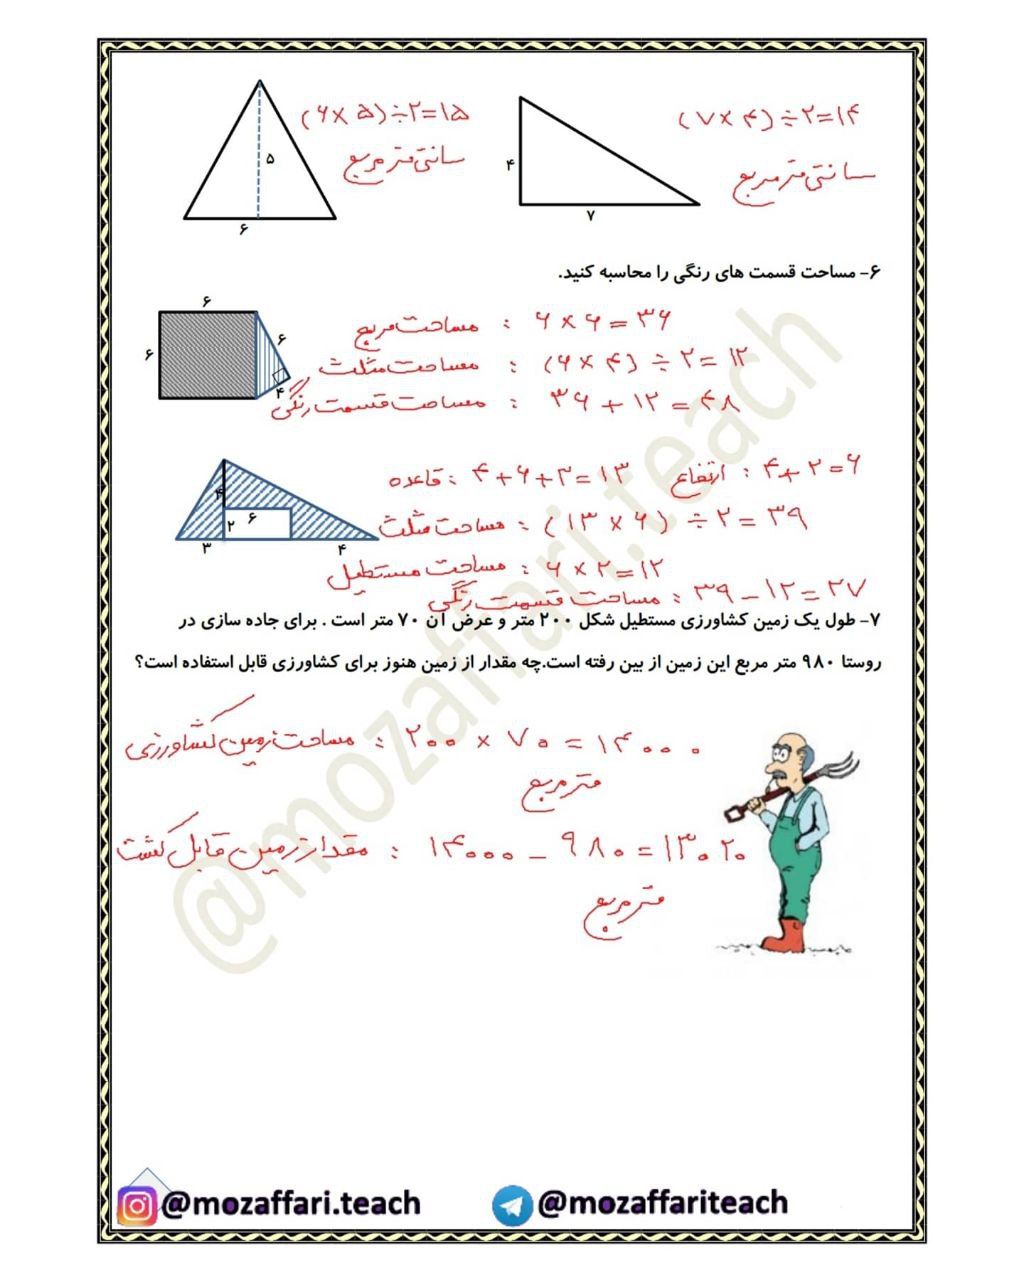 (۶×۵)÷۲=۱۵
سانتی متر مربع
۵
۶
(۷×۴)÷۲=۱۴
سانتی متر مربع
۴
۷
۶- مساحت قسمت های رنگی را محاسبه کنید.
۶
۶
۶
۴
مساحت مربع : ۶×۶=۳۶
مساحت مثلث : (۶×۴)÷۲=۱۲
مساحت قسمت رنگی : ۳۶+۱۲=۴۸
۴
۲
۶
۳
۴
ارتفاع : ۴+۲=۶
قاعده : ۴+۶+۳=۱۳
مساحت مثلث : (۱۳×۶)÷۲=۳۹
مساحت مستطیل : ۶×۲=۱۲
مساحت قسمت رنگی : ۳۹-۱۲=۲۷
۷- طول یک زمین کشاورزی مستطیل شکل ۲۰۰ متر و عرض آن ۷۰ متر است . برای جاده سازی در
روستا ۹۸۰ متر مربع این زمین از بین رفته است.چه مقدار از زمین هنوز برای کشاورزی قابل استفاده است؟
مساحت زمین کشاورزی : ۲۰۰×۷۰=۱۴۰۰۰
متر مربع
مقدار زمین قابل کشت : ۱۴۰۰۰-۹۸۰=۱۳۰۲۰
متر مربع
@mozaffari.teach
@mozaffari.teach
@mozaffariteach